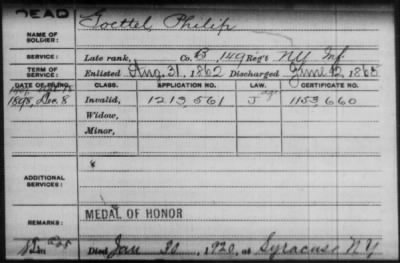 DEAD
NAME OF SOLDIER: Goettel, Philip
SERVICE: Late rank, Co. B 149 Reg't NY Inf.
TERM OF SERVICE: Enlisted Aug. 31, 1862 Discharged June 12, 1865
DATE OF FILING. CLASS. APPLICATION NO. LAW. CERTIFICATE NO.
1898, Dec. 8 Invalid, 1213,561 1153,660
Widow,
Minor,
ADDITIONAL SERVICES:
REMARKS: MEDAL OF HONOR
Died Jan 30, 1920, at Syracuse NY